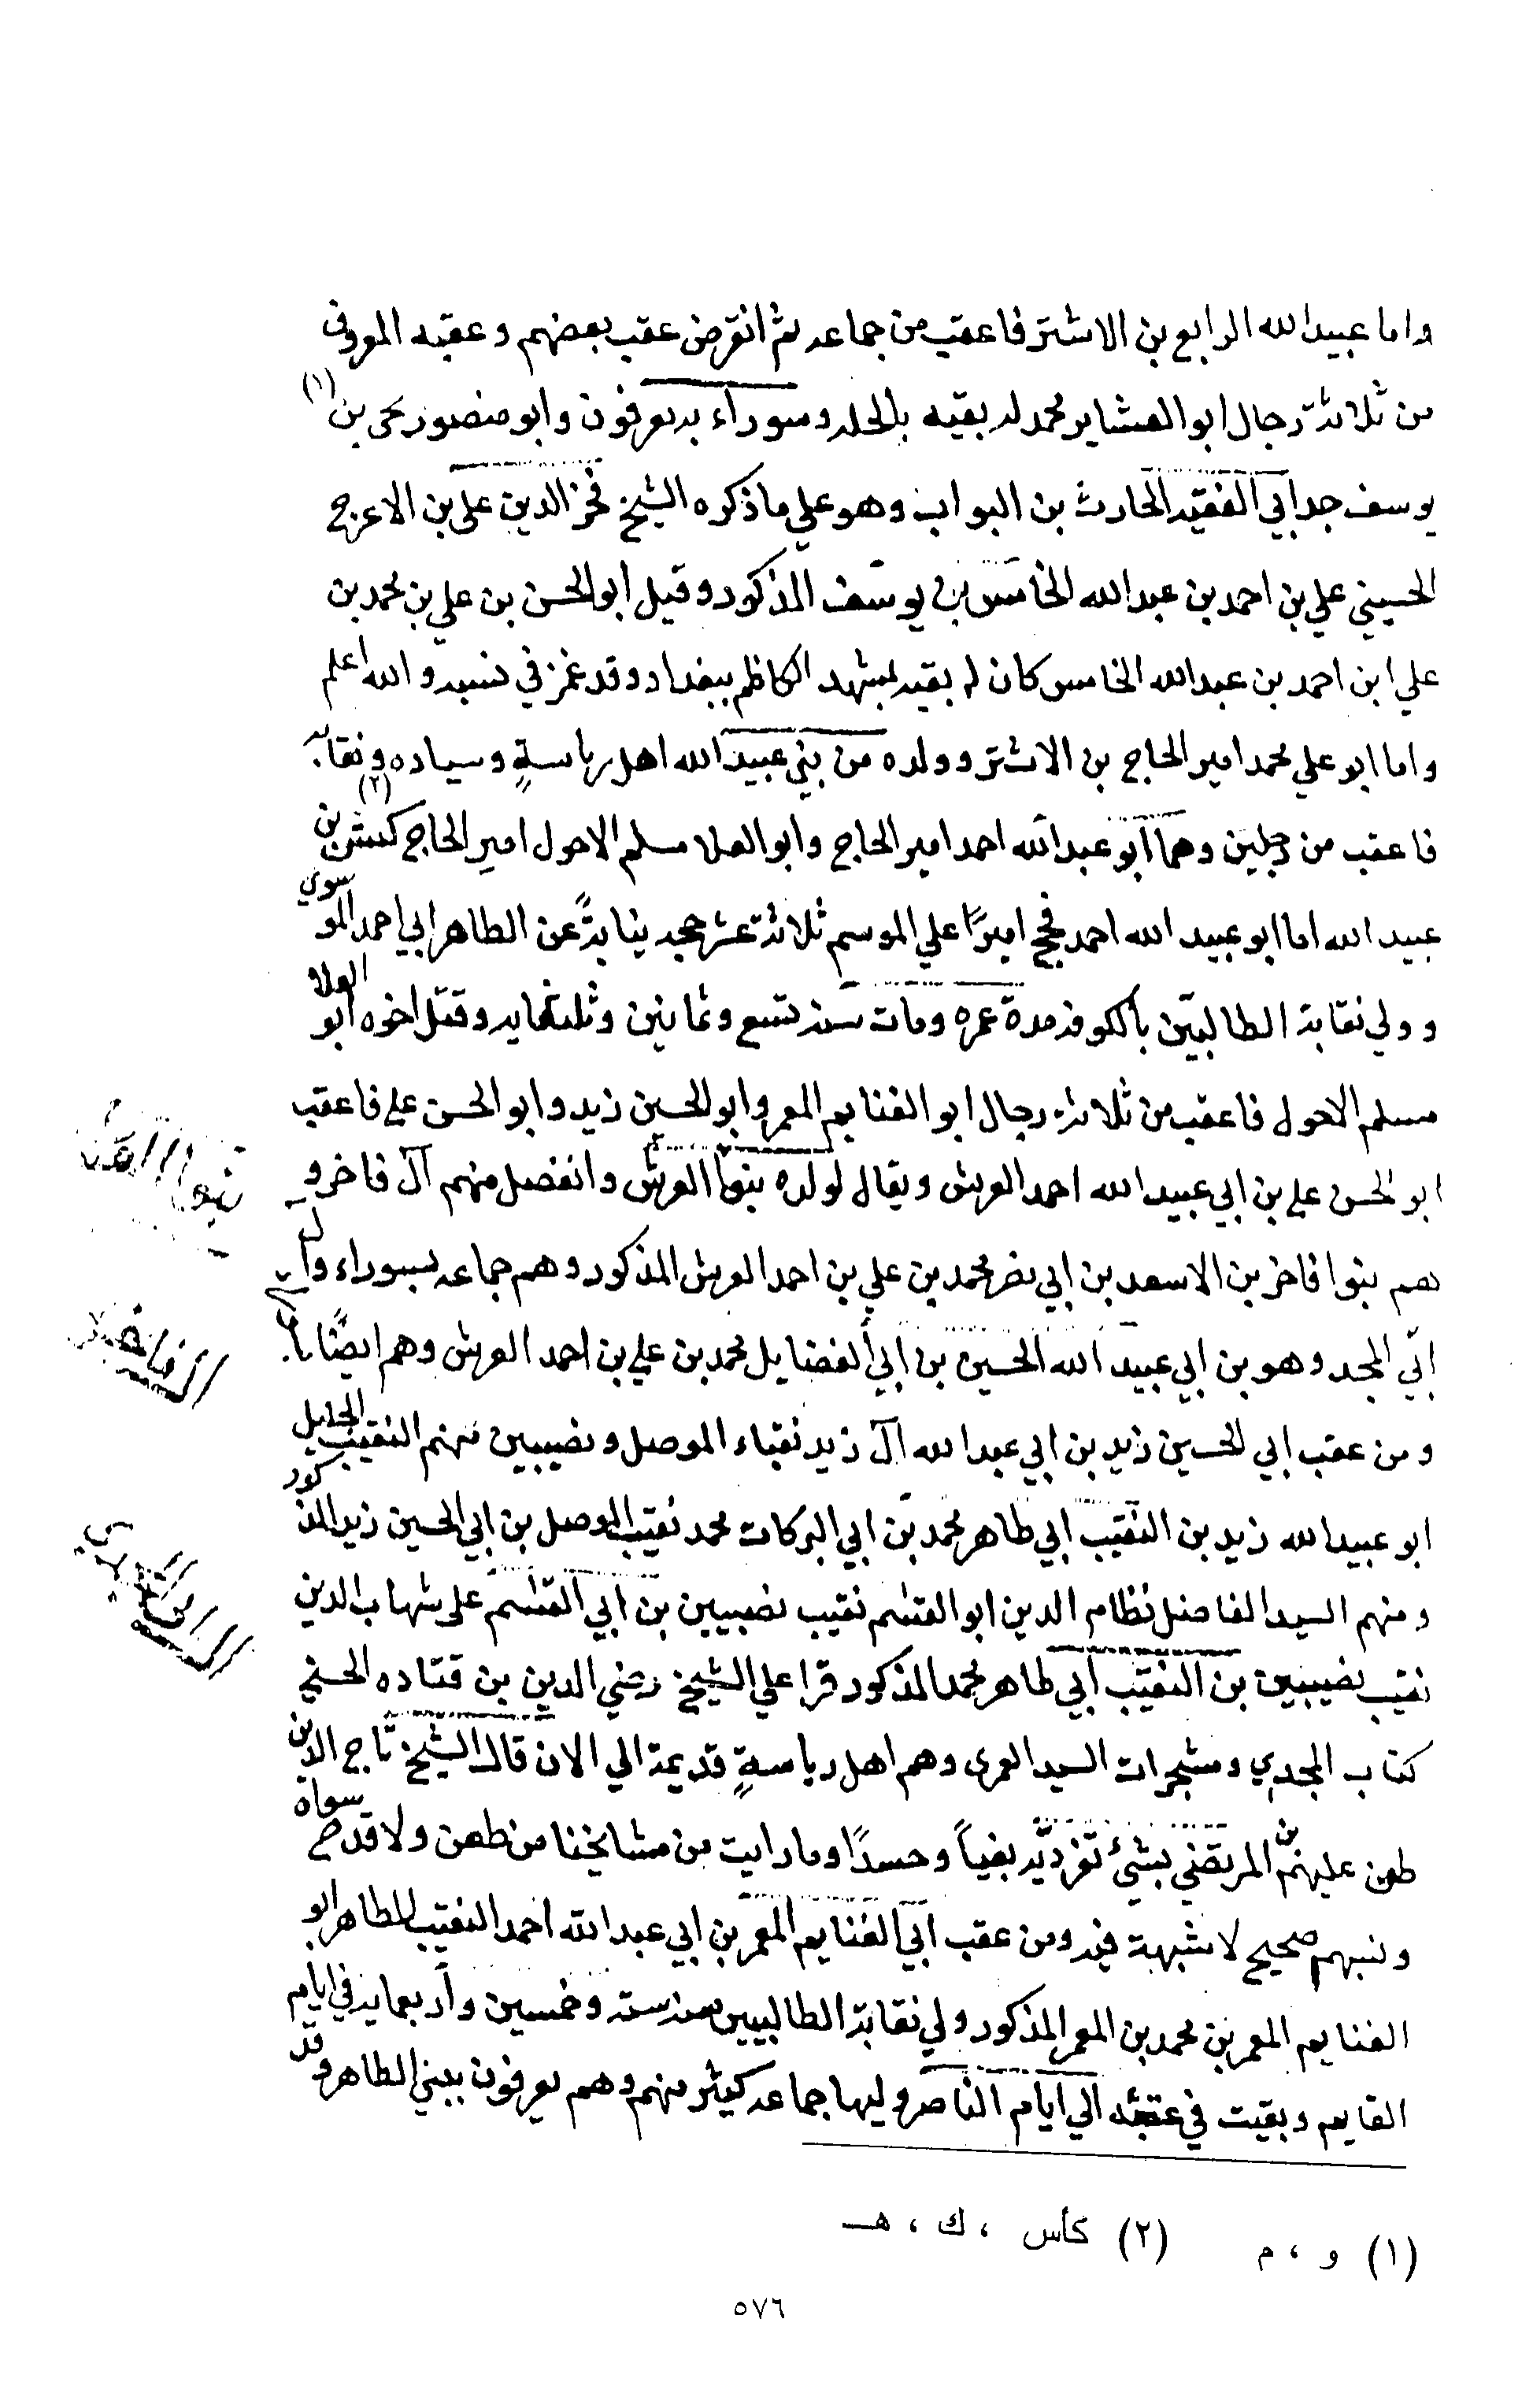 واما عبيدالله الرابع بن الاشتر فاعقب من جماعه ثم انقرض عقب بعضهم وعقبه المعروف
من ثلاثة رجال ابو العشاير محمد له بقيه بالحله وسوراء به يعرفون وابو منصور يحيى بن (١)
يوسف جد ابي الفقيه الحارث بن البواب وهو علي ما ذكره الشيخ فخر الدين علي بن الاعرج
الحسيني علي بن احمد بن عبدالله الخامس بن يوسف المذكور وقيل ابو الحسن بن علي بن محمد بن
علي ابن احمد بن عبدالله الخامس كان له بقيه بمشهد الكاظم ببغداد وقد غمز في نسبه والله اعلم
واما ابو علي محمد امير الحاج بن الاشتر وولده من بني عبيدالله اهل رياسةٍ وسياده ونقابه
فاعقب من رجلين وهما ابو عبدالله احمد امير الحاج وابو العلا مسلم الاحول امير الحاج كبش (٢) بن
عبيدالله اما ابو عبيدالله احمد فحج اميرًا علي الموسم ثلاثة عشر حجه نيابةً عن الطاهر ابي احمد الموسوي
وولي نقابة الطالبيّين بالكوفه مدة عمره ومات سنه تسع وثمانين وثلثمايه وقتل اخوه ابو العلا
مسلم الاحول فاعقب من ثلاثة رجال ابو الغنايم المعمر وابو الحسين زيد وابو الحسن علي فاعقب
ابو الحسن علي بن ابي عبيدالله احمد العرش ويقال لولده بنوا العرش وانفصل منهم آل فاخر و
هم بنوا فاخر بن الاسعد بن ابي نضر محمد بن علي بن احمد العرش المذكور وهم جماعه بسوراء وآل
ابي المجد وهو بن ابي عبيدالله الحسين بن ابي الفضايل محمد بن علي بن احمد العرش وهم ايضًا بها
ومن عقب ابي الحسين زيد بن ابي عبدالله آل زيد نقباء الموصل ونصيبين منهم النقيب الجليل
ابو عبيدالله زيد بن النقيب ابي طاهر محمد بن ابي البركات محمد نقيب الموصل بن ابي الحسين زيد المذكور
ومنهم السيد الفاضل نظام الدين ابو القاسم نقيب نصيبين بن ابي القاسم علي شهاب الدين
نقيب نصيبين بن النقيب ابي طاهر محمد المذكور قرا علي الشيخ رضي الدين بن قتاده الحسني
كتاب المجدي ومشجرات السيد العمرى وهم اهل رياسةٍ قديمة الي الان قال الشيخ تاج الدين
طعن عليهم بن المرتضي بشئ تفرد به بغياً وحسدًا وما رايت من مشايخنا من طعن ولا قدح سواه
ونسبهم صحيح لا شبهة فيه ومن عقب ابي الغنايم المعمر بن ابي عبدالله احمد النقيب الطاهر ابو
الغنايم المعمر بن محمد بن المعمر المذكور ولي نقابة الطالبيين سنه سته وخمسين واربعمايه في ايام
القايم وبقيت في عقبه الي ايام الناصر وليها جماعه كثير منهم وهم يعرفون ببني الطاهر وقد
(١) و ، م (٢) كأس ، ك ، هـ
٥٧٦